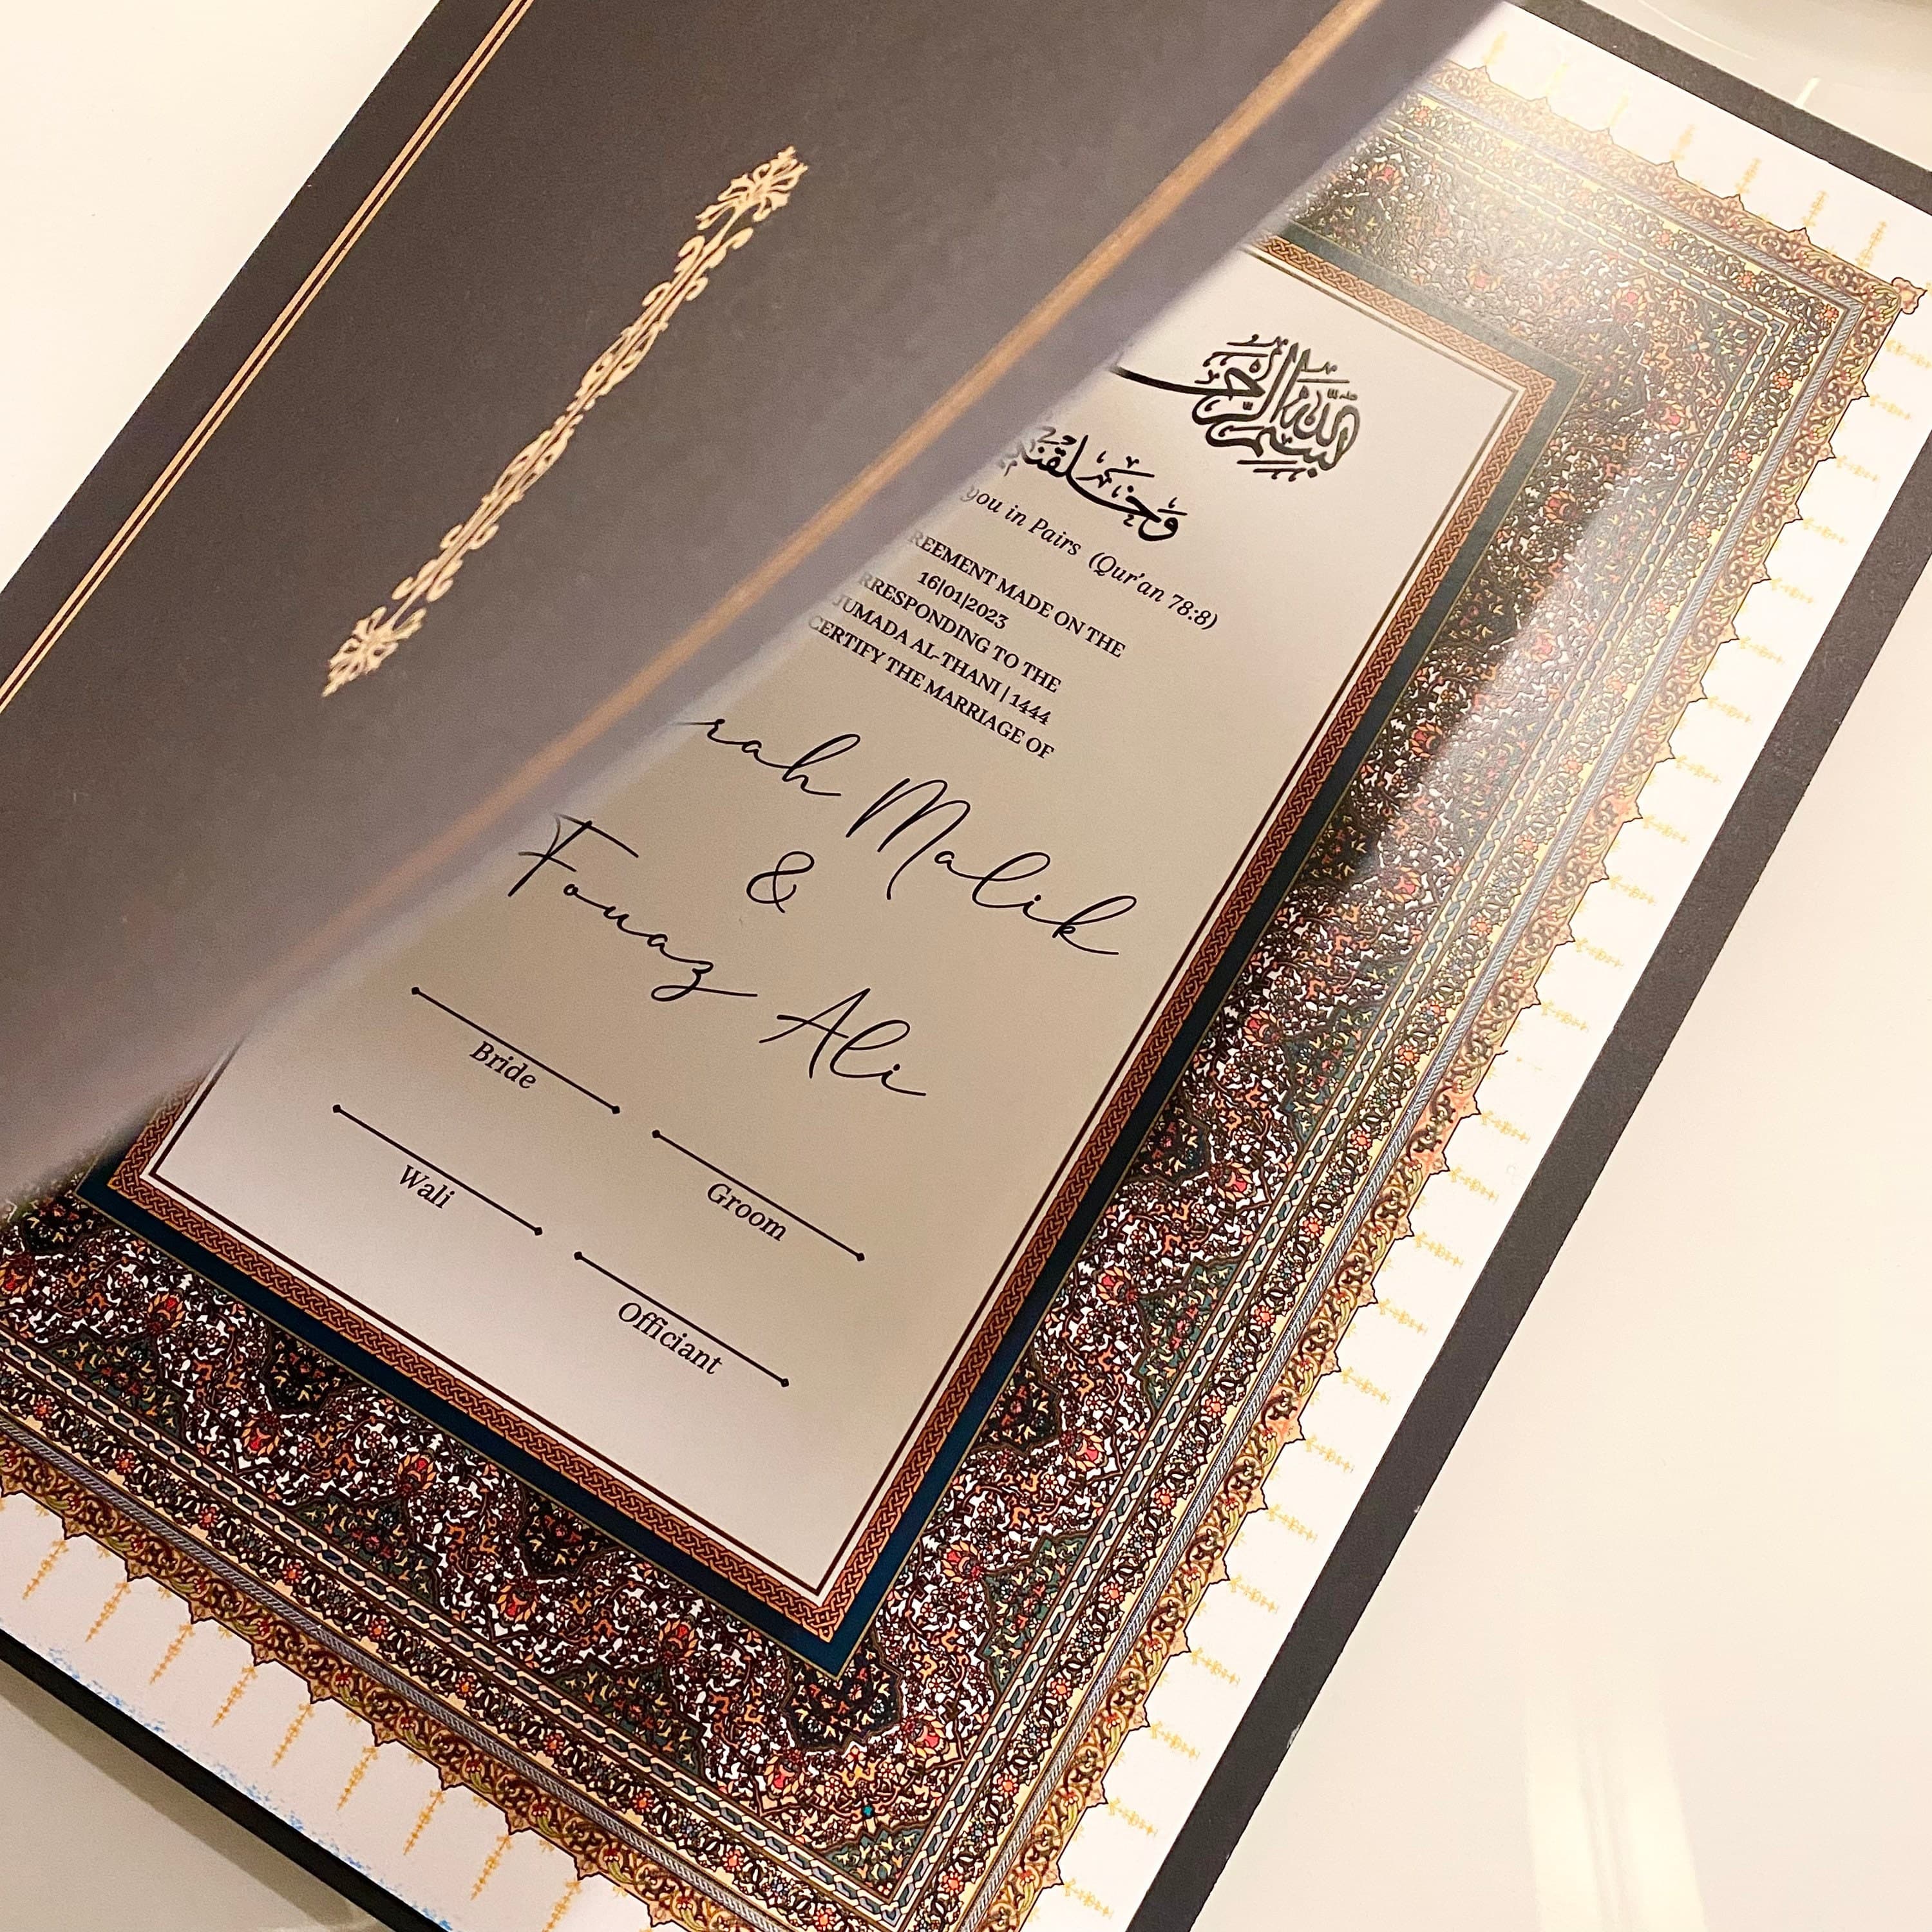 بسم الله الرحمن
وخلقنكم
you in Pairs (Qur'an 78:8)
REEMENT MADE ON THE
16|01|2023
RRESPONDING TO THE
JUMADA AL-THANI | 1444
CERTIFY THE MARRIAGE OF
rah Malik
&
Fouaz Ali
Bride
Groom
Wali
Officiant